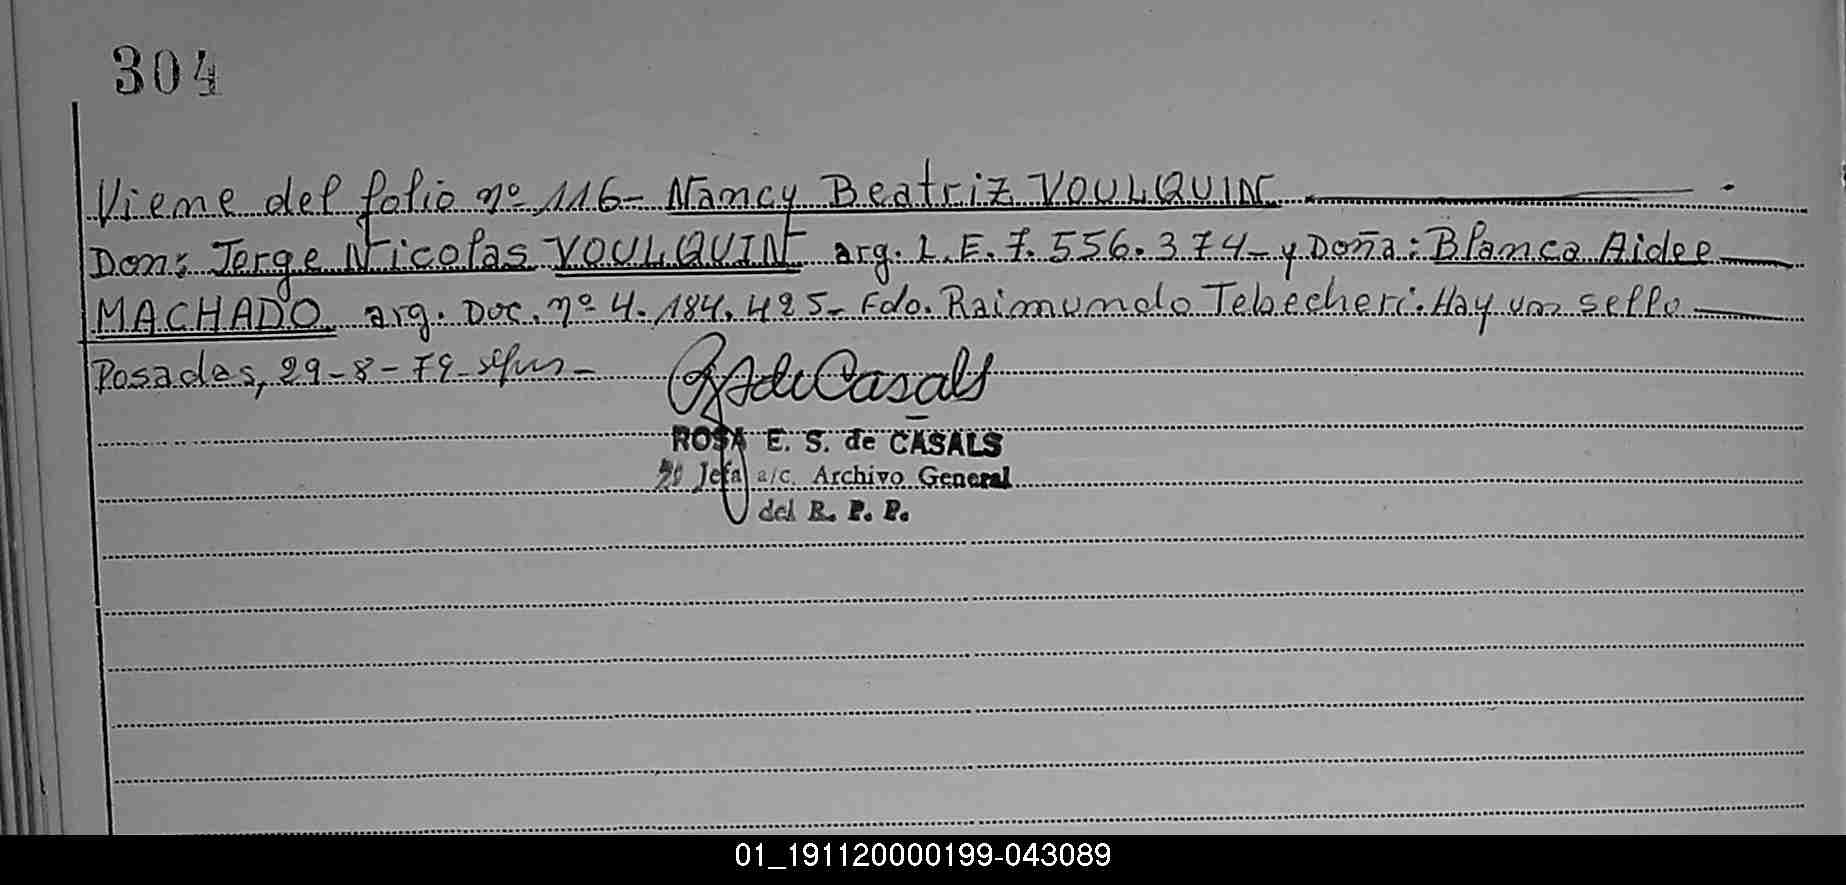 304
Viene del folio nº 116- Nancy Beatriz VOULQUIN
Don: Jorge Nicolas VOULQUIN arg. L.E. 7.556.374- y Doña: Blanca Aidee
MACHADO arg. Doc. nº 4.184.425- Fdo. Raimundo Tebecheri. Hay un sello
Posadas, 29-8-79-
de Casals
ROSA E. S. de CASALS
Jefa a/c. Archivo General
del R. P. P.
01_191120000199-043089